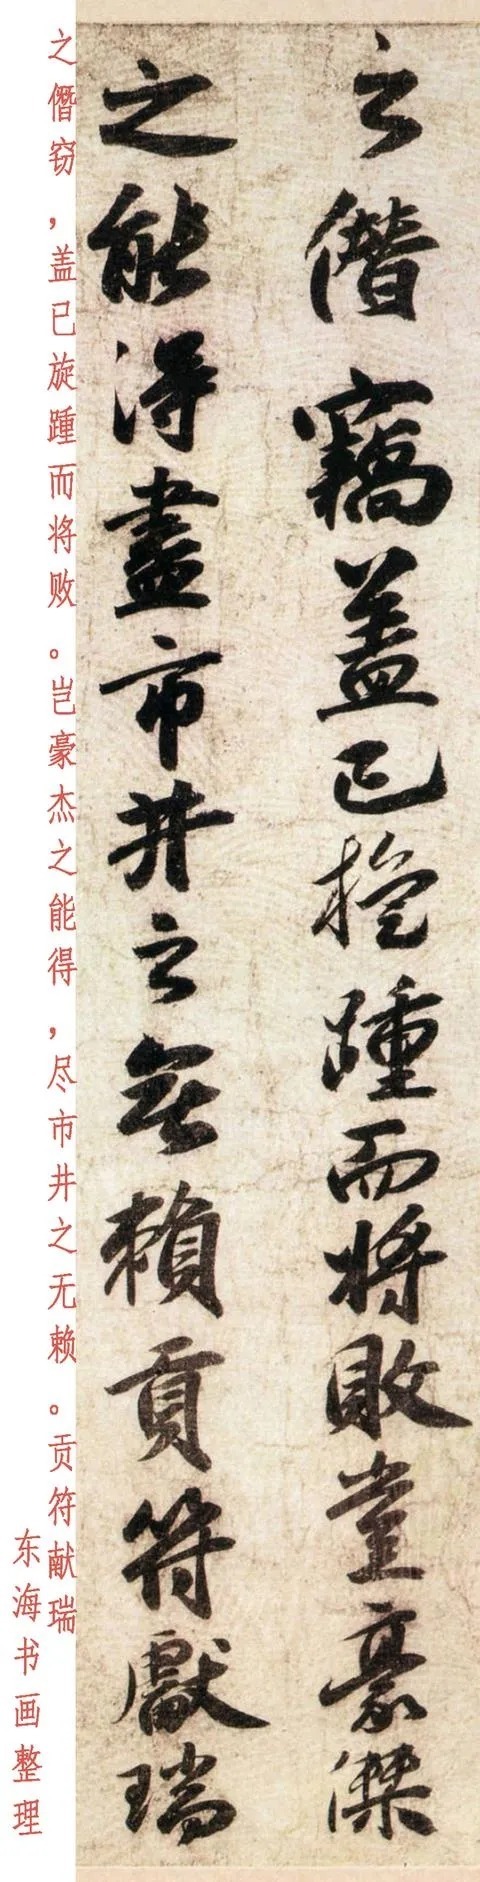 之僭竊蓋已旋踵而将敗豈豪傑
之能得盡市井之無賴貢符獻瑞
之僭窃，盖已旋踵而将败。岂豪杰之能得，尽市井之无赖。贡符献瑞
东海书画整理